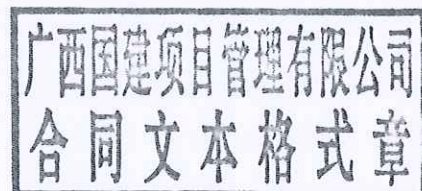 广西国建项目管理有限公司
合同文本格式章